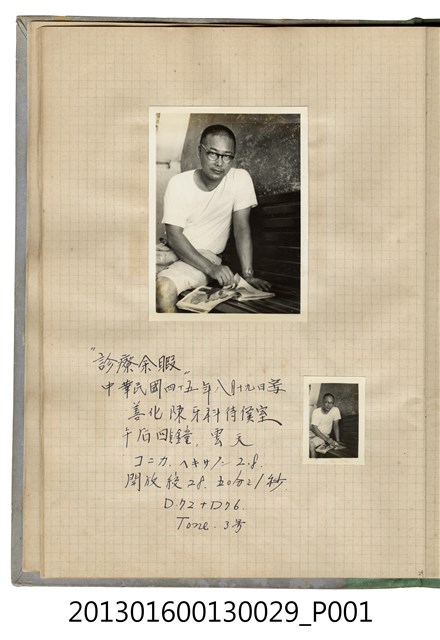 "診療余暇"
中華民國四十五年八月十九日寫
善化陳牙科待候室
午后四時鐘，雲天
コニカ．ヘキサノン 2.8.
開放絞 2.8. 五0分之1秒
D.72+D76.
Tone. 3号
201301600130029_P001